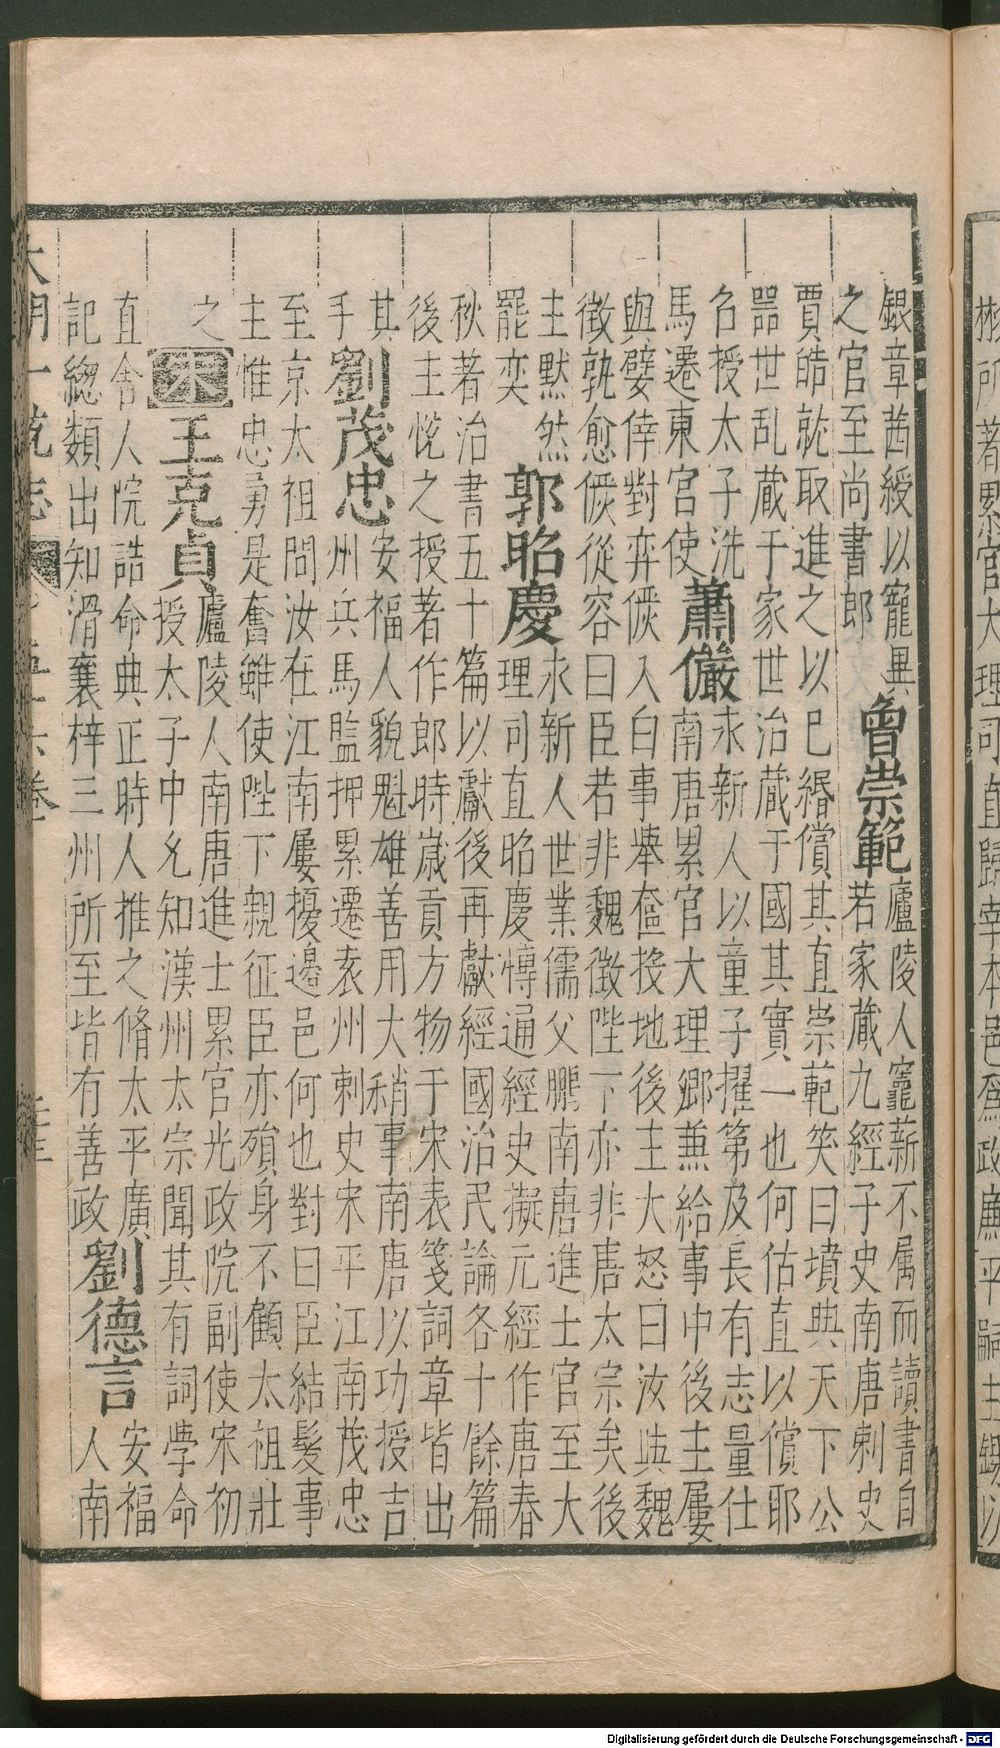 所著累官大理司直歸宰本邑爲政廉平嗣主錫以
銀章茜綬以寵異
之官至尚書郎
曾崇範
廬陵人竈薪不属而讀書自
若家藏九經子史南唐刺史
賈皓就取進之以巳緡償其直崇範笑曰墳典天下公
噐世乱藏于家世治藏于國其實一也何估直以償耶
名授太子洗
馬遷東宮使
蕭儼
永新人以童子擢第及長有志量仕
南唐累官大理卿兼給事中後主屢
與嬖倖對弈儼入白事舉奩投地後主大怒曰汝與魏
徵孰愈儼從容曰臣若非魏徵陛下亦非唐太宗矣後
主默然
罷奕
郭昭慶
永新人世業儒父鵬南唐進士官至大
理司直昭慶愽通經史擬元經作唐春
秋著治書五十篇以獻後再獻經國治民論各十餘篇
後主悅之授著作郎時歳貢方物于宋表箋詞章皆出
其
手
劉茂忠
安福人貌魁雄善用大稍事南唐以功授吉
州兵馬監押累遷袁州刺史宋平江南茂忠
至京太祖問汝在江南屢擾邉邑何也對曰臣結髮事
主惟忠勇是奮雖使陛下親征臣亦殞身不顧太祖壯
之
宋
王克貞
廬陵人南唐進士累官光政院副使宋初
授太子中允知漢州太宗聞其有詞學命
直舍人院誥命典正時人推之脩太平廣
記總類出知滑襄梓三州所至皆有善政
劉德言
安福
人南
大明一統志
Digitalisierung gefördert durch die Deutsche Forschungsgemeinschaft - DFG